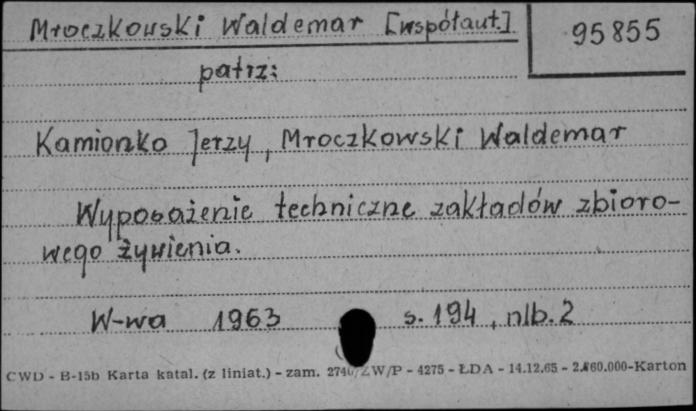 Mroczkowski Waldemar [współaut.]
95855
patrz:
Kamionko Jerzy, Mroczkowski Waldemar
Wyposażenie techniczne zakładów zbioro-
wego żywienia.
W-wa 1963 s. 194, nlb. 2
CWD - B-15b Karta katal. (z liniat.) - zam. 2740/ZW/P - 4275 - ŁDA - 14.12.65 - 2.860.000-Karton